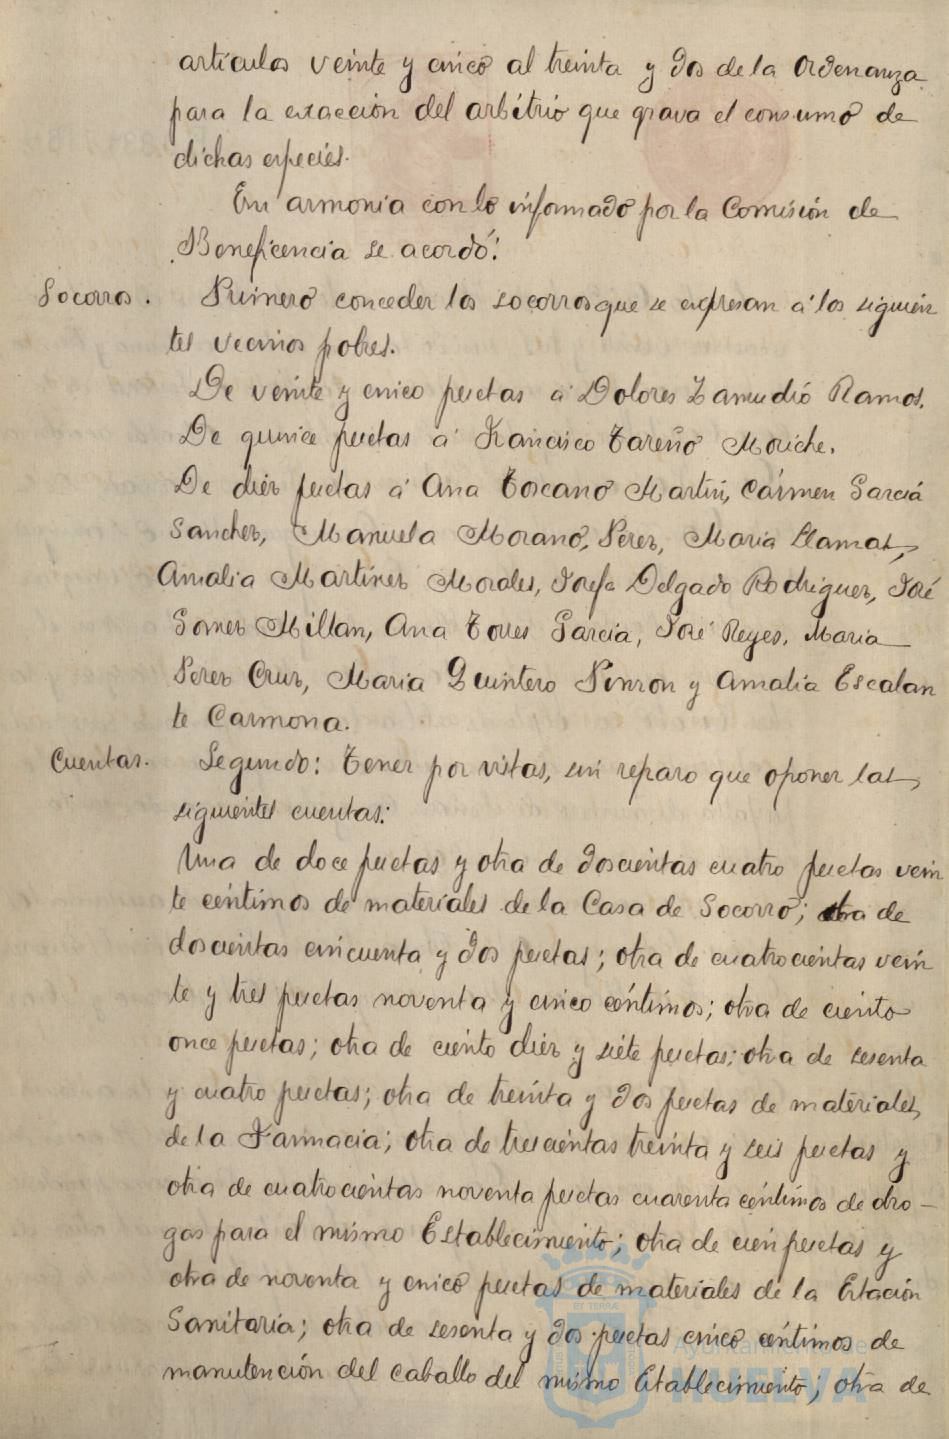 artículos veinte y cinco al treinta y dos de la Ordenanza
para la exacción del arbitrio que grava el consumo de
dichas especies.
En armonia con lo informado por la Comisión de
Beneficencia se acordó:
Socorros. Primero conceder los socorros que se expresan á los siguien
tes vecinos pobres.
De veinte y cinco pesetas á Dolores Zamudio Ramos.
De quince pesetas á Francisco Tareño Moriche.
De diez pesetas á Ana Toscano Martin, Cármen García
Sanchez, Manuela Morano, Perez, Maria Llamas,
Amalia Martinez Morales, Josefa Delgado Rodriguez, José
Gomez Millan, Ana Torres García, José Reyes, Maria
Perez Cruz, Maria Quintero Pinzon y Amalia Escalan
te Carmona.
Cuentas. Segundo: Tener por vistas, sin reparo que oponer las
siguientes cuentas:
Una de doce pesetas y otra de doscientas cuatro pesetas vein
te céntimos de materiales de la Casa de Socorro; otra de
doscientas cincuenta y dos pesetas; otra de cuatrocientas vein
te y tres pesetas noventa y cinco céntimos; otra de ciento
once pesetas; otra de ciento diez y siete pesetas; otra de sesenta
y cuatro pesetas; otra de treinta y dos pesetas de materiales
de la Farmacia; otra de trescientas treinta y seis pesetas y
otra de cuatrocientas noventa pesetas cuarenta céntimos de dro-
gas para el mismo Establecimiento; otra de cien pesetas y
otra de noventa y cinco pesetas de materiales de la Estación
Sanitaria; otra de sesenta y dos pesetas cinco céntimos de
manutención del caballo del mismo Establecimiento; otra de
Ayuntamiento de
HUELVA